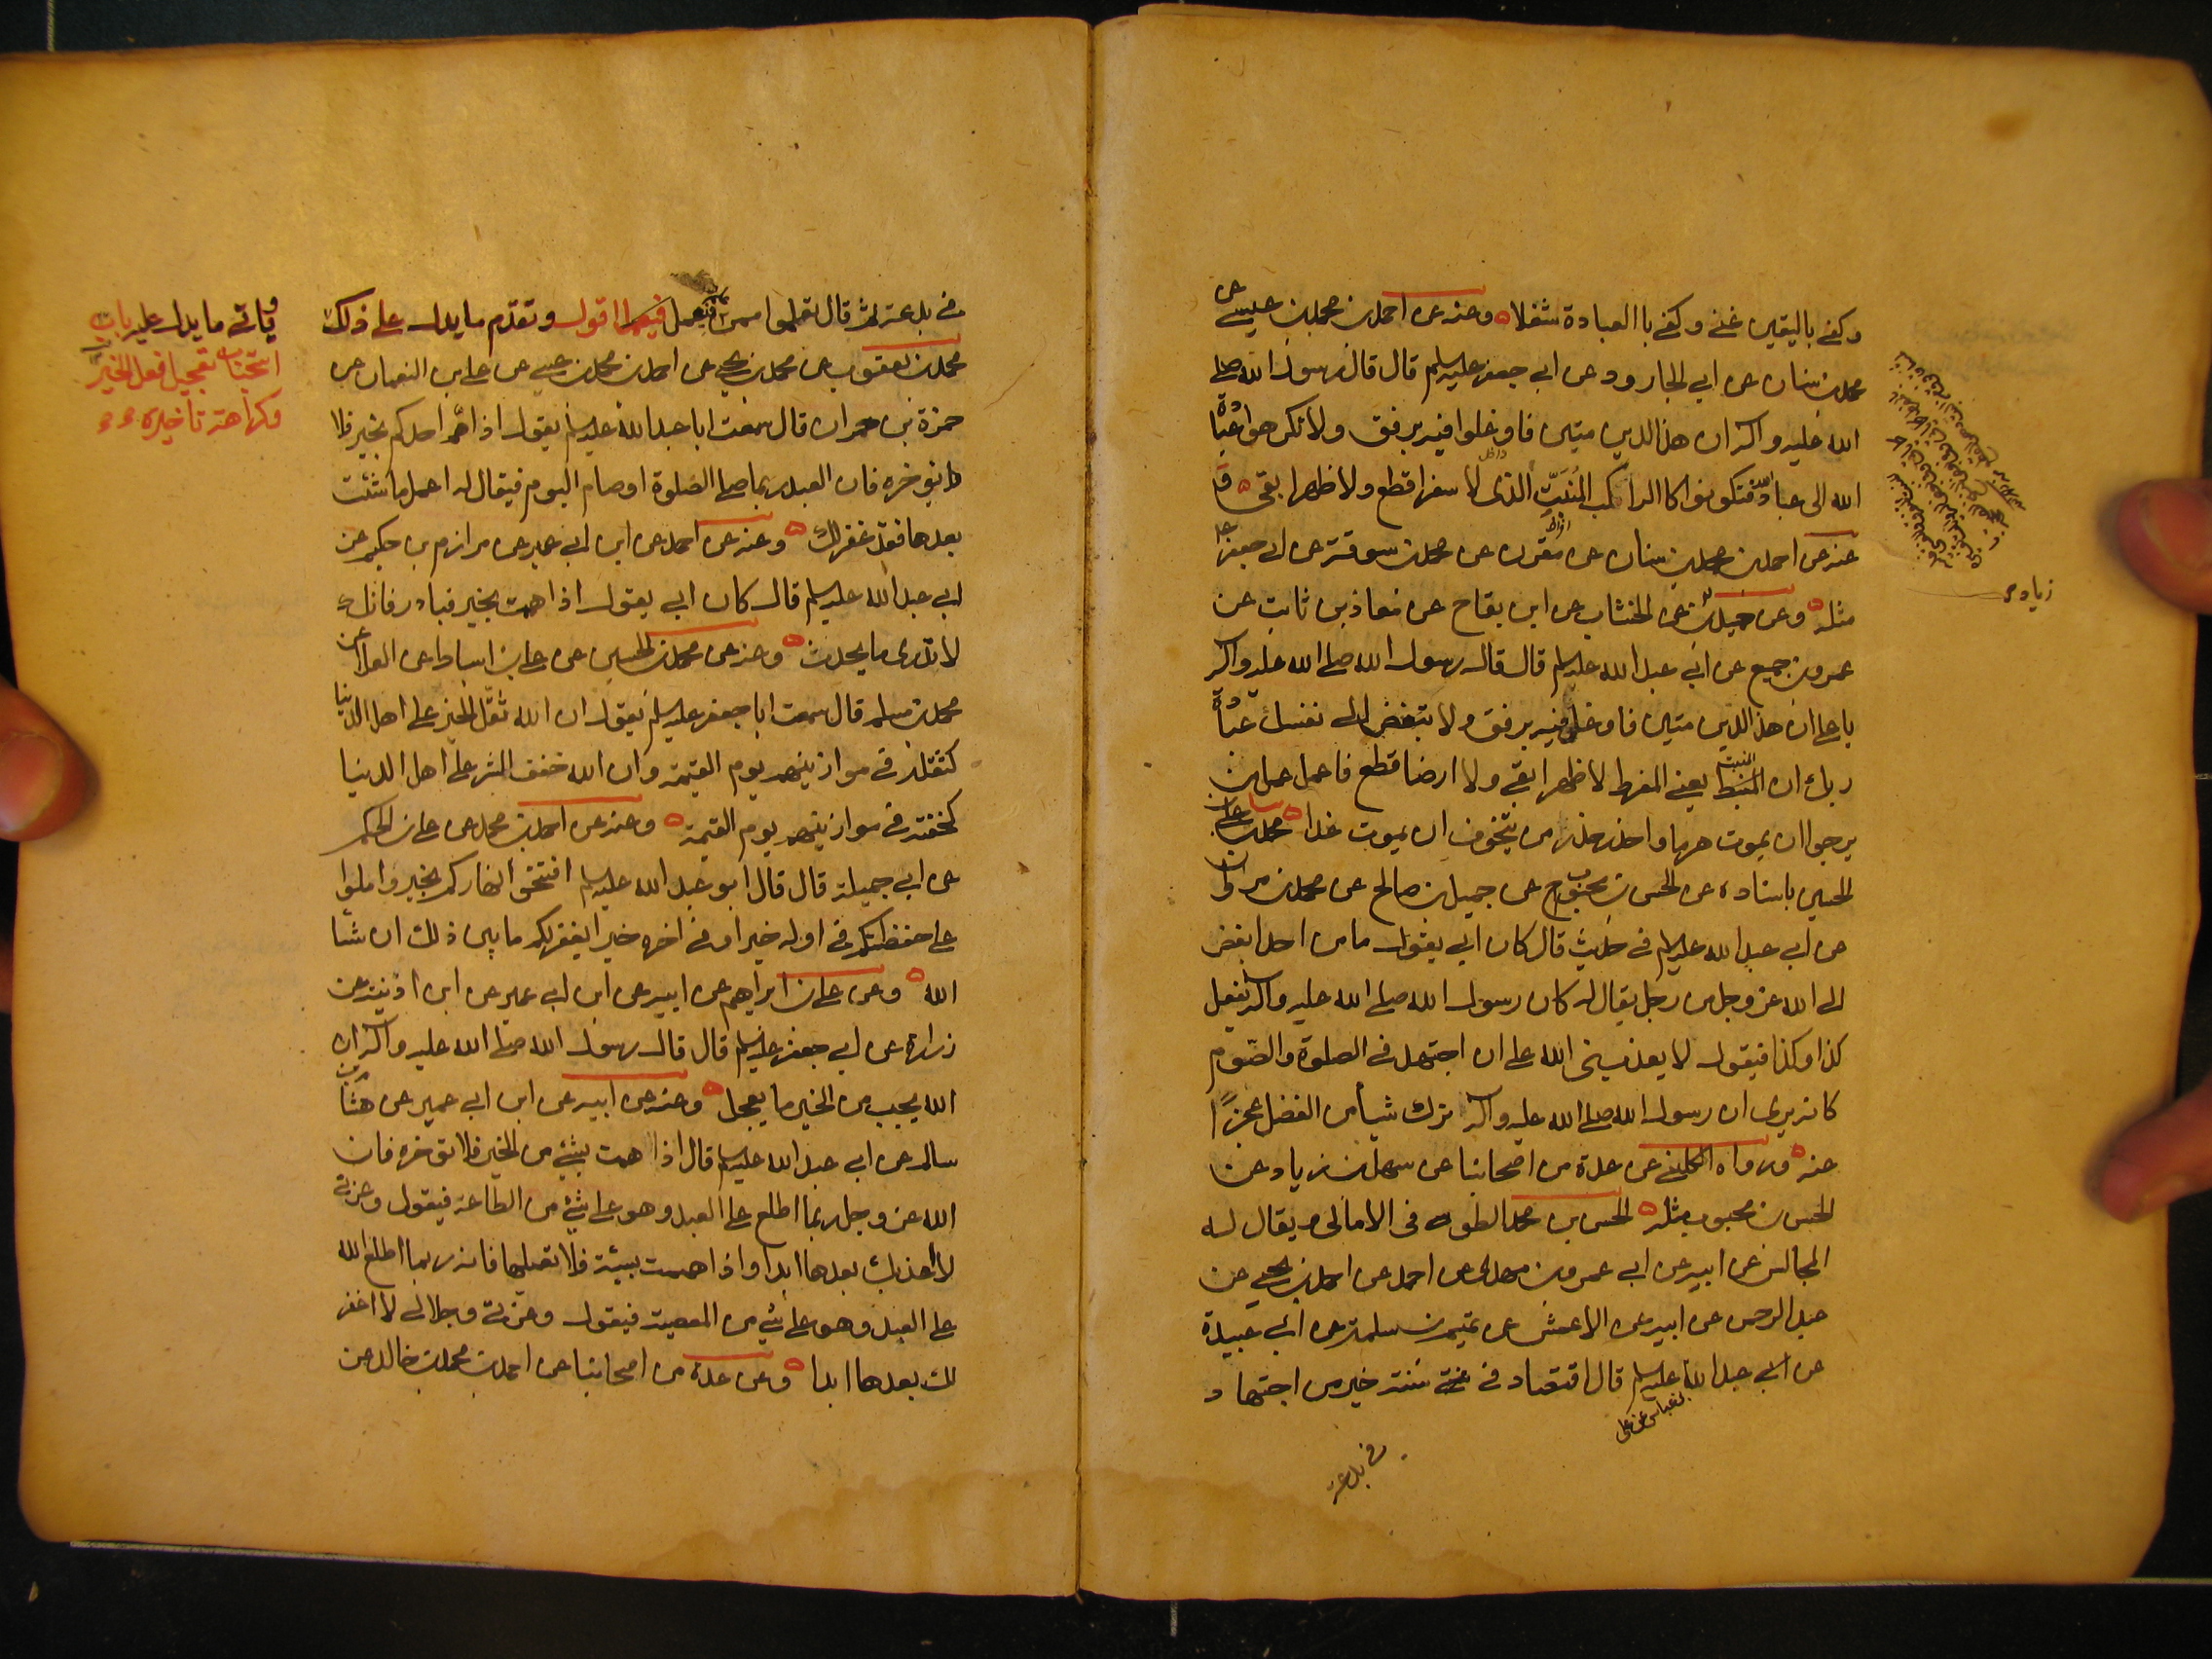 وكفى باليقين غنى وكفى با العبادة شغلا وعنه عن احمد بن محمد بن عيسى عن
محمد بن سنان عن ابي الجارود عن ابي جعفر عليه السلم قال قال رسول الله صلى
الله عليه واله ان هذا الدين متين فاوغلوا فيه برفق ولا تكرهوا عبادة
الله الى عباد الله فتكونوا كا الراكب المنبت الذى لا سفرا قطع ولا ظهرا ابقى و
عنه عن احمد بن محمد بن سنان عن مقرن عن محمد بن سوقة عن ابي جعفر ع
مثله وعن حميد بن عن الخشاب عن ابن بقاح عن معاذ بن ثابت عن
عمرو بن جميع عن ابي عبد الله عليه السلم قال قال رسول الله صلى الله عليه واله
يا علي ان هذا الدين متين فاوغل فيه برفق ولا تبغض الى نفسك عبادة
ربك ان المنبت يعني المفرط لا ظهرا ابقى ولا ارضا قطع فاعمل عمل من
يرجوا ان يموت هرما واحذر حذر من يتخوف ان يموت غدا محمد بن علي بن
الحسين باسناده عن الحسن بن محبوب عن جميل بن صالح عن محمد بن مروان
عن ابي عبد الله عليه السلم في حديث قال كان ابي يقول ما من احد ابغض
الى الله عز وجل من رجل يقال له كان رسول الله صلى الله عليه واله يفعل
كذا وكذا فيقول لا يعذبني الله على ان اجتهد في الصلوة والصوم
كانه يرى ان رسول الله صلى الله عليه واله ترك شيأ من الفضل عجزا
عنه ورواه الكليني عن عدة من اصحابنا عن سهل بن زياد عن
الحسن بن محبوب مثله الحسن بن محمد الطوسي في الامالي ويقال له
المجالس عن ابيه عن ابي عمرو بن مهدي عن احمد عن احمد بن يحيى عن
عبد الرحمن عن ابيه عن الاعمش عن تميم بن سلمة عن ابي عبيدة
عن ابي عبد الله عليه السلم قال اقتصاد في سنة خير من اجتهاد
بن عباس عن علي
في بدعة
زياده
في بدعة ثم قال تعلموا ممن علم فعمل فيهما اقول وتقدم ما يدل على ذلك
وياتي ما يدل عليه باب
استحباب تعجيل فعل الخير
وكراهة تاخيره
محمد بن يعقوب عن محمد بن يحيى عن احمد بن محمد بن عيسى عن علي بن النعمان عن
حمزة بن حمران قال سمعت ابا عبد الله عليه السلم يقول اذا هم احدكم بخير فلا
يؤخره فان العبد ربما صلى الصلوة او صام اليوم فيقال له اعمل ما شئت
بعدها فقد غفر لك وعنه عن احمد عن ابن ابي عمير عن مرازم بن حكيم عن
ابي عبد الله عليه السلم قال كان ابي يقول اذا هممت بخير فبادر فانك
لا تدرى ما يحدث وعنه عن محمد بن الحسين عن علي بن اسباط عن العلا عن
محمد بن مسلم قال سمعت ابا جعفر عليه السلم يقول ان الله ثقل الخير على اهل الدنيا
كثقله في موازينهم يوم القيمة وان الله خفف الشر على اهل الدنيا
كخفته في موازينهم يوم القيمة وعنه عن احمد بن محمد عن علي بن الحكم
عن ابي جميلة قال قال ابو عبد الله عليه السلم افتتحوا نهاركم بخير واملوا
على حفظتكم في اوله خيرا وفي اخره خيرا يغفر لكم ما بين ذلك ان شأ
الله وعن علي بن ابراهيم عن ابيه عن ابن ابي عمير عن ابن اذينة عن
زرارة عن ابي جعفر عليه السلم قال قال رسول الله صلى الله عليه واله ان
الله يحب من الخير ما يعجل وعنه عن ابيه عن ابن ابي عمير عن هشام بن
سالم عن ابي عبد الله عليه السلم قال اذا هممت بشيء من الخير فلا تؤخره فان
الله عز وجل ربما اطلع على العبد وهو على شيء من الطاعة فيقول وعزتي
لا اعذبك بعدها ابدا واذا هممت بسيئة فلا تعملها فانه ربما اطلع الله
على العبد وهو على شيء من المعصية فيقول وعزتي وجلالي لا اغفر
لك بعدها ابدا وعن عدة من اصحابنا عن احمد بن محمد بن خالد عن